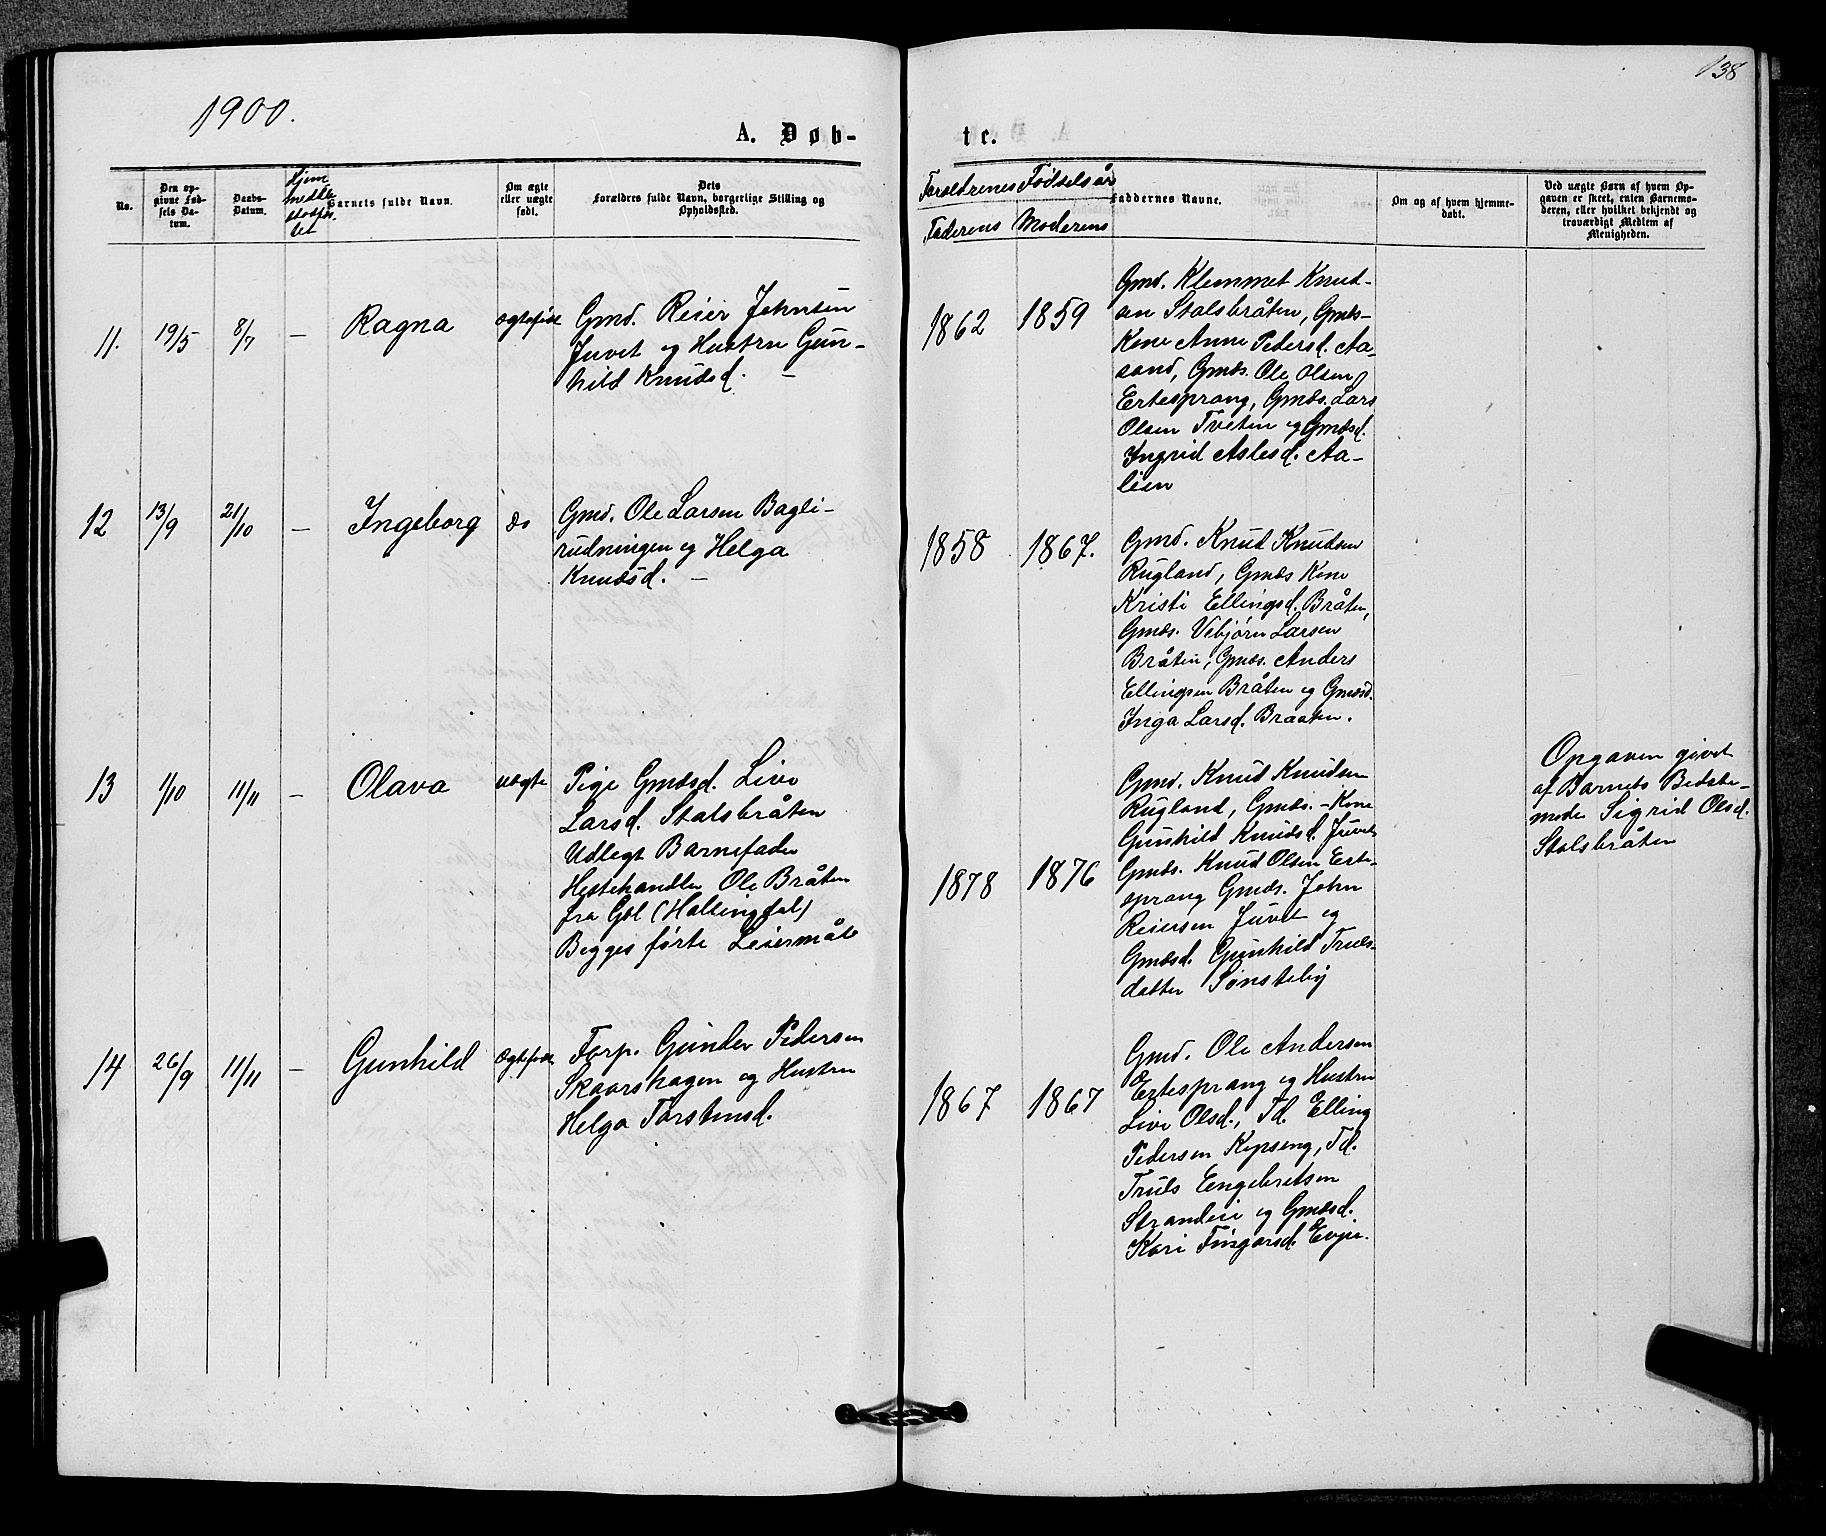 138
1900.
A. Døb-
te.
No.
Den op-
givne Fød-
sels Da-
tum.
Daabs-
Datum.
Hjem
medde
Barnets fulde Navn.
Om ægte
eller uægte
født.
Dets
Forældres fulde Navn, borgerlige Stilling og
Opholdssted.
Forældrenes Fødselsår
Faderens Moderens
Faddernes Navne.
Om og af hvem hjemme-
døbt.
Ved uægte Børn af hvem Op-
gaven er skeet, enten Barnemo-
deren, eller hvilket bekjendt og
troværdigt Medlem af
Menigheden.
11.
19/5
8/7
—
Ragna
ægtefød
Gmd. Reier Johnsen
Juvet og Hustru Gun-
hild Knudsd. —
1862
1859
Gmd. Klemmet Knud-
sen Stalsbråten, Gmds-
Kone Anne Pedersd. Aa-
sand, Gmds. Ole Olsen
Ertesprang, Gmds. Lars
Olsen Tveten og Gmdsd.
Ingrid Aslesd. Aa-
lien
12
13/9
21/10
—
Ingeborg
do
Gmd. Ole Larsen Bagli-
rudningen og Helga
Knudsd. —
1858
1867.
Gmd. Knud Knudsen
Rugland, Gmds Kone
Kristi Ellingsd. Bråten,
Gmds. Vebjørn Larsen
Bråten, Gmds. Anders
Ellingsen Bråten og Gmdsd.
Inga Larsd. Braaten.
13
1/10
11/11
—
Olava
uægte
Pige Gmdsd. Live
Larsd. Stalsbråten
Udlegt Barnefader
Hestehandler Ole Bråten
fra Gol (Hallingdal)
Begges første Leiermål
1878
1876
Gmd. Knud Knudsen
Rugland, Gmds. - Kone
Gunhild Knudsd. Juvet
Gmds. Knud Olsen Erte-
sprang Gmds. John
Reiersen Juvet og
Gmdsd. Gunhild Truls-
datter Sønsteby
Opgaven givet
af Barnets Bedste-
moder Sigrid Olsd.
Stalsbråten
14
26/9
11/11
—
Gunhild
Ægtefød
Forp. Gunder Pedersen
Skaarshagen og Hustru
Helga Torstensd.
1867
1867
Gmd. Ole Andersen
Ertesprang og Hustru
Live Olsd., Td. Elling
Pedersen Kopseng, Td.
Truls Engebretsen
Strandeie og Gmdsd.
Kari Fingarsd. Evju.